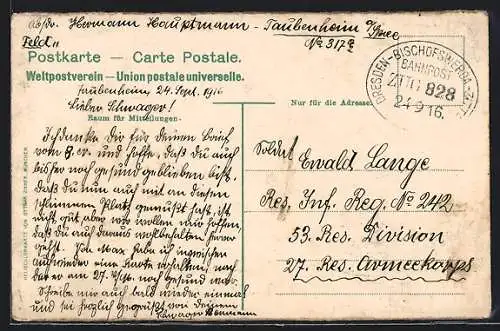 Abs. Hermann Hauptmann - Taubenheim a/Spree
"Feld" No 317 c
Postkarte – Carte Postale.
Weltpostverein – Union postale universelle.
DRESDEN-BISCHOFSWERDA-
BAHNPOST
ZUG 828
24.9.16.
Taubenheim, 24. Sept. 1916
Lieber Schwager!
Nur für die Adresse.
Raum für Mitteilungen
Ich danke Dir für deinen Brief
vom 8. er. und hoffe, daß Du auch
bisher noch gesund geblieben bist.
Daß du nun auch mit an diesen
schlimmen Platz gemußt hast, ist
nicht gut, aber wir wollen nur hoffen,
daß du auch daraus wohlbehalten hervor
gehst. Von Max habe ich inzwischen
auch wieder eine Karte erhalten, nach
der er am noch gesund war.
Schreibe nur auch bald wieder einmal
und sei herzlich gegrüßt von deinem
Schwager Hermann
Soldat Ewald Lange
Res. Inf. Reg. No 242
53. Res. Division
27. Res. Armeekorps